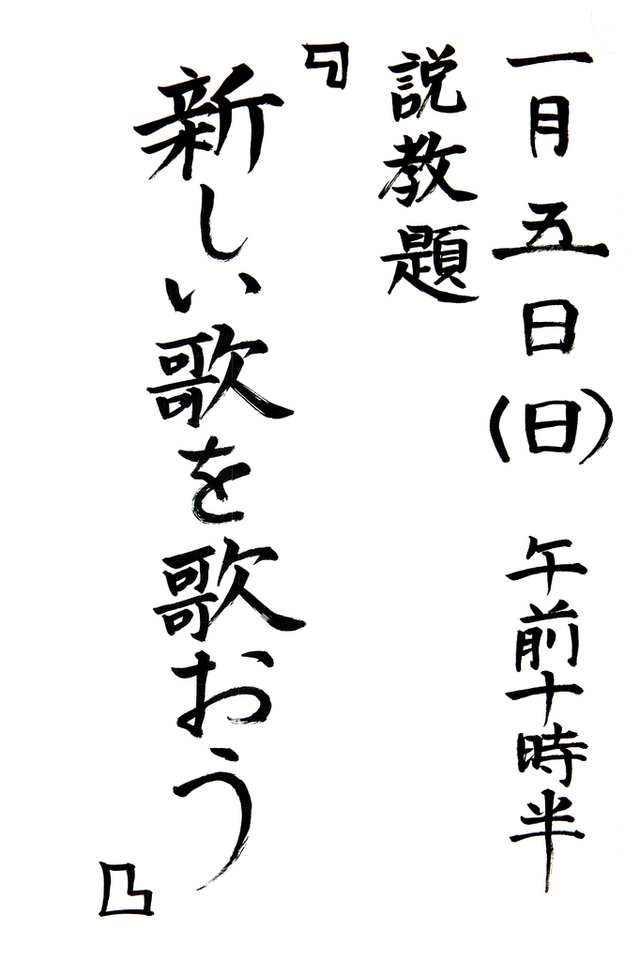 一月五日(日) 午前十時半
説教題
『新しい歌を歌おう』